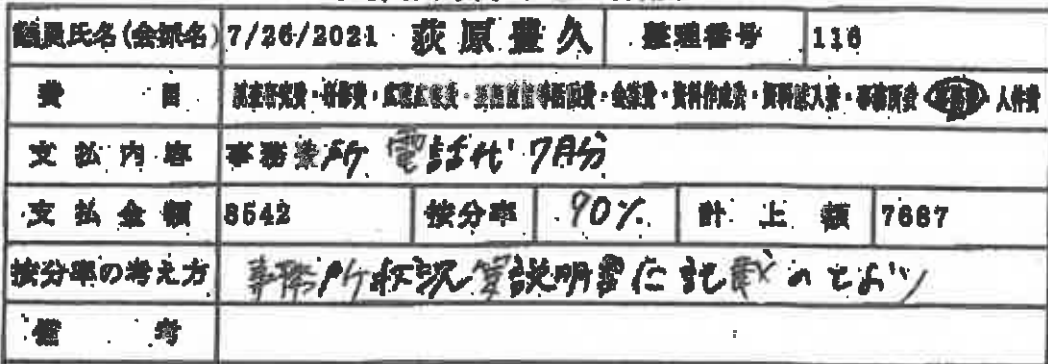 議員氏名(会派名) 7/26/2021 荻原豊久 整理番号 116
費目 調査研究費・研修費・広聴広報費・要請陳情等活動費・会議費・資料作成費・資料購入費・事務所費・事務費・人件費
支払内容 事務所 電話代 7月分
支払金額 8542 按分率 90% 計上額 7687
按分率の考え方 事務所状況等説明書に記載のとおり
備考